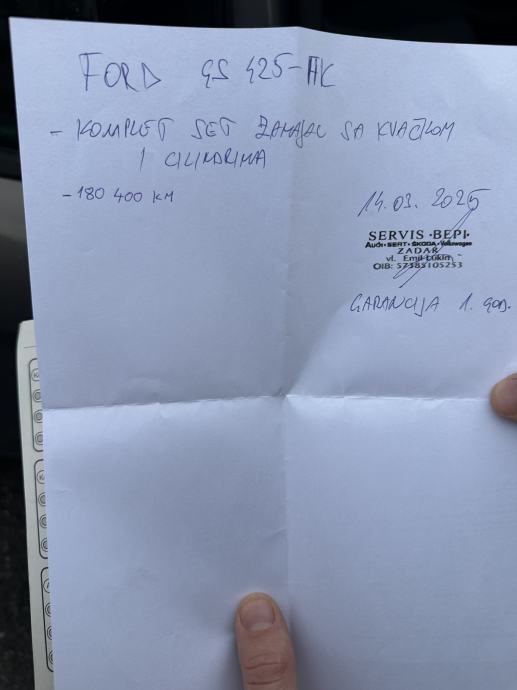 FORD GS 425-HK
- KOMPLET SET ZAMAJAC SA KVAČILOM
I CILINDRIMA
- 180 400 KM
14.03. 2025
SERVIS •BEPI•
Audi•SEAT•ŠKODA•Volkswagen
ZADAR
vl. Emil Lukin
OIB: 57385105253
GARANCIJA 1. GOD.